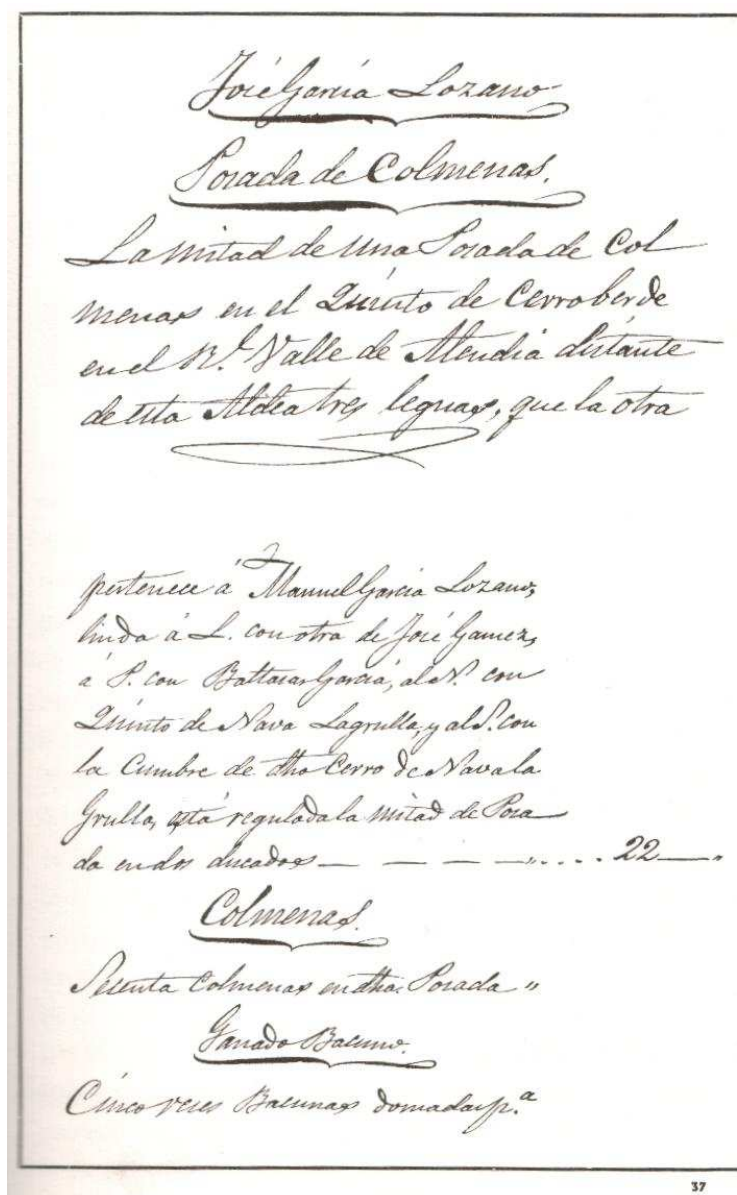 José García Lozano
Posada de Colmenas.
La mitad de una Posada de Col
menas en el Quinto de Cerroberde
en el Rl. Valle de Alcudia distante
de esta Aldea tres leguas, que la otra
pertenece á Manuel García Lozano,
linda á L. con otra de José Gamez,
á P. con Baltasar García, al N. con
Quinto de Nava Lagrulla, y al S. con
la Cumbre de dho Cerro de Navala
Grulla, está regulada la mitad de Posa
da en dos ducados — — — — „ . . . . 22 — „
Colmenas.
Sesenta Colmenas en dha. Posada „
Ganado Bacuno.
Cinco reses Bacunas domadas p.a
37